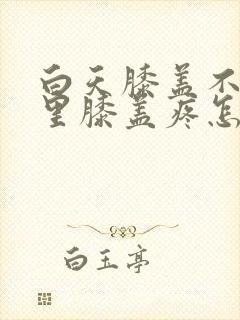 白天膝盖不
里膝盖疼怎
白玉亭